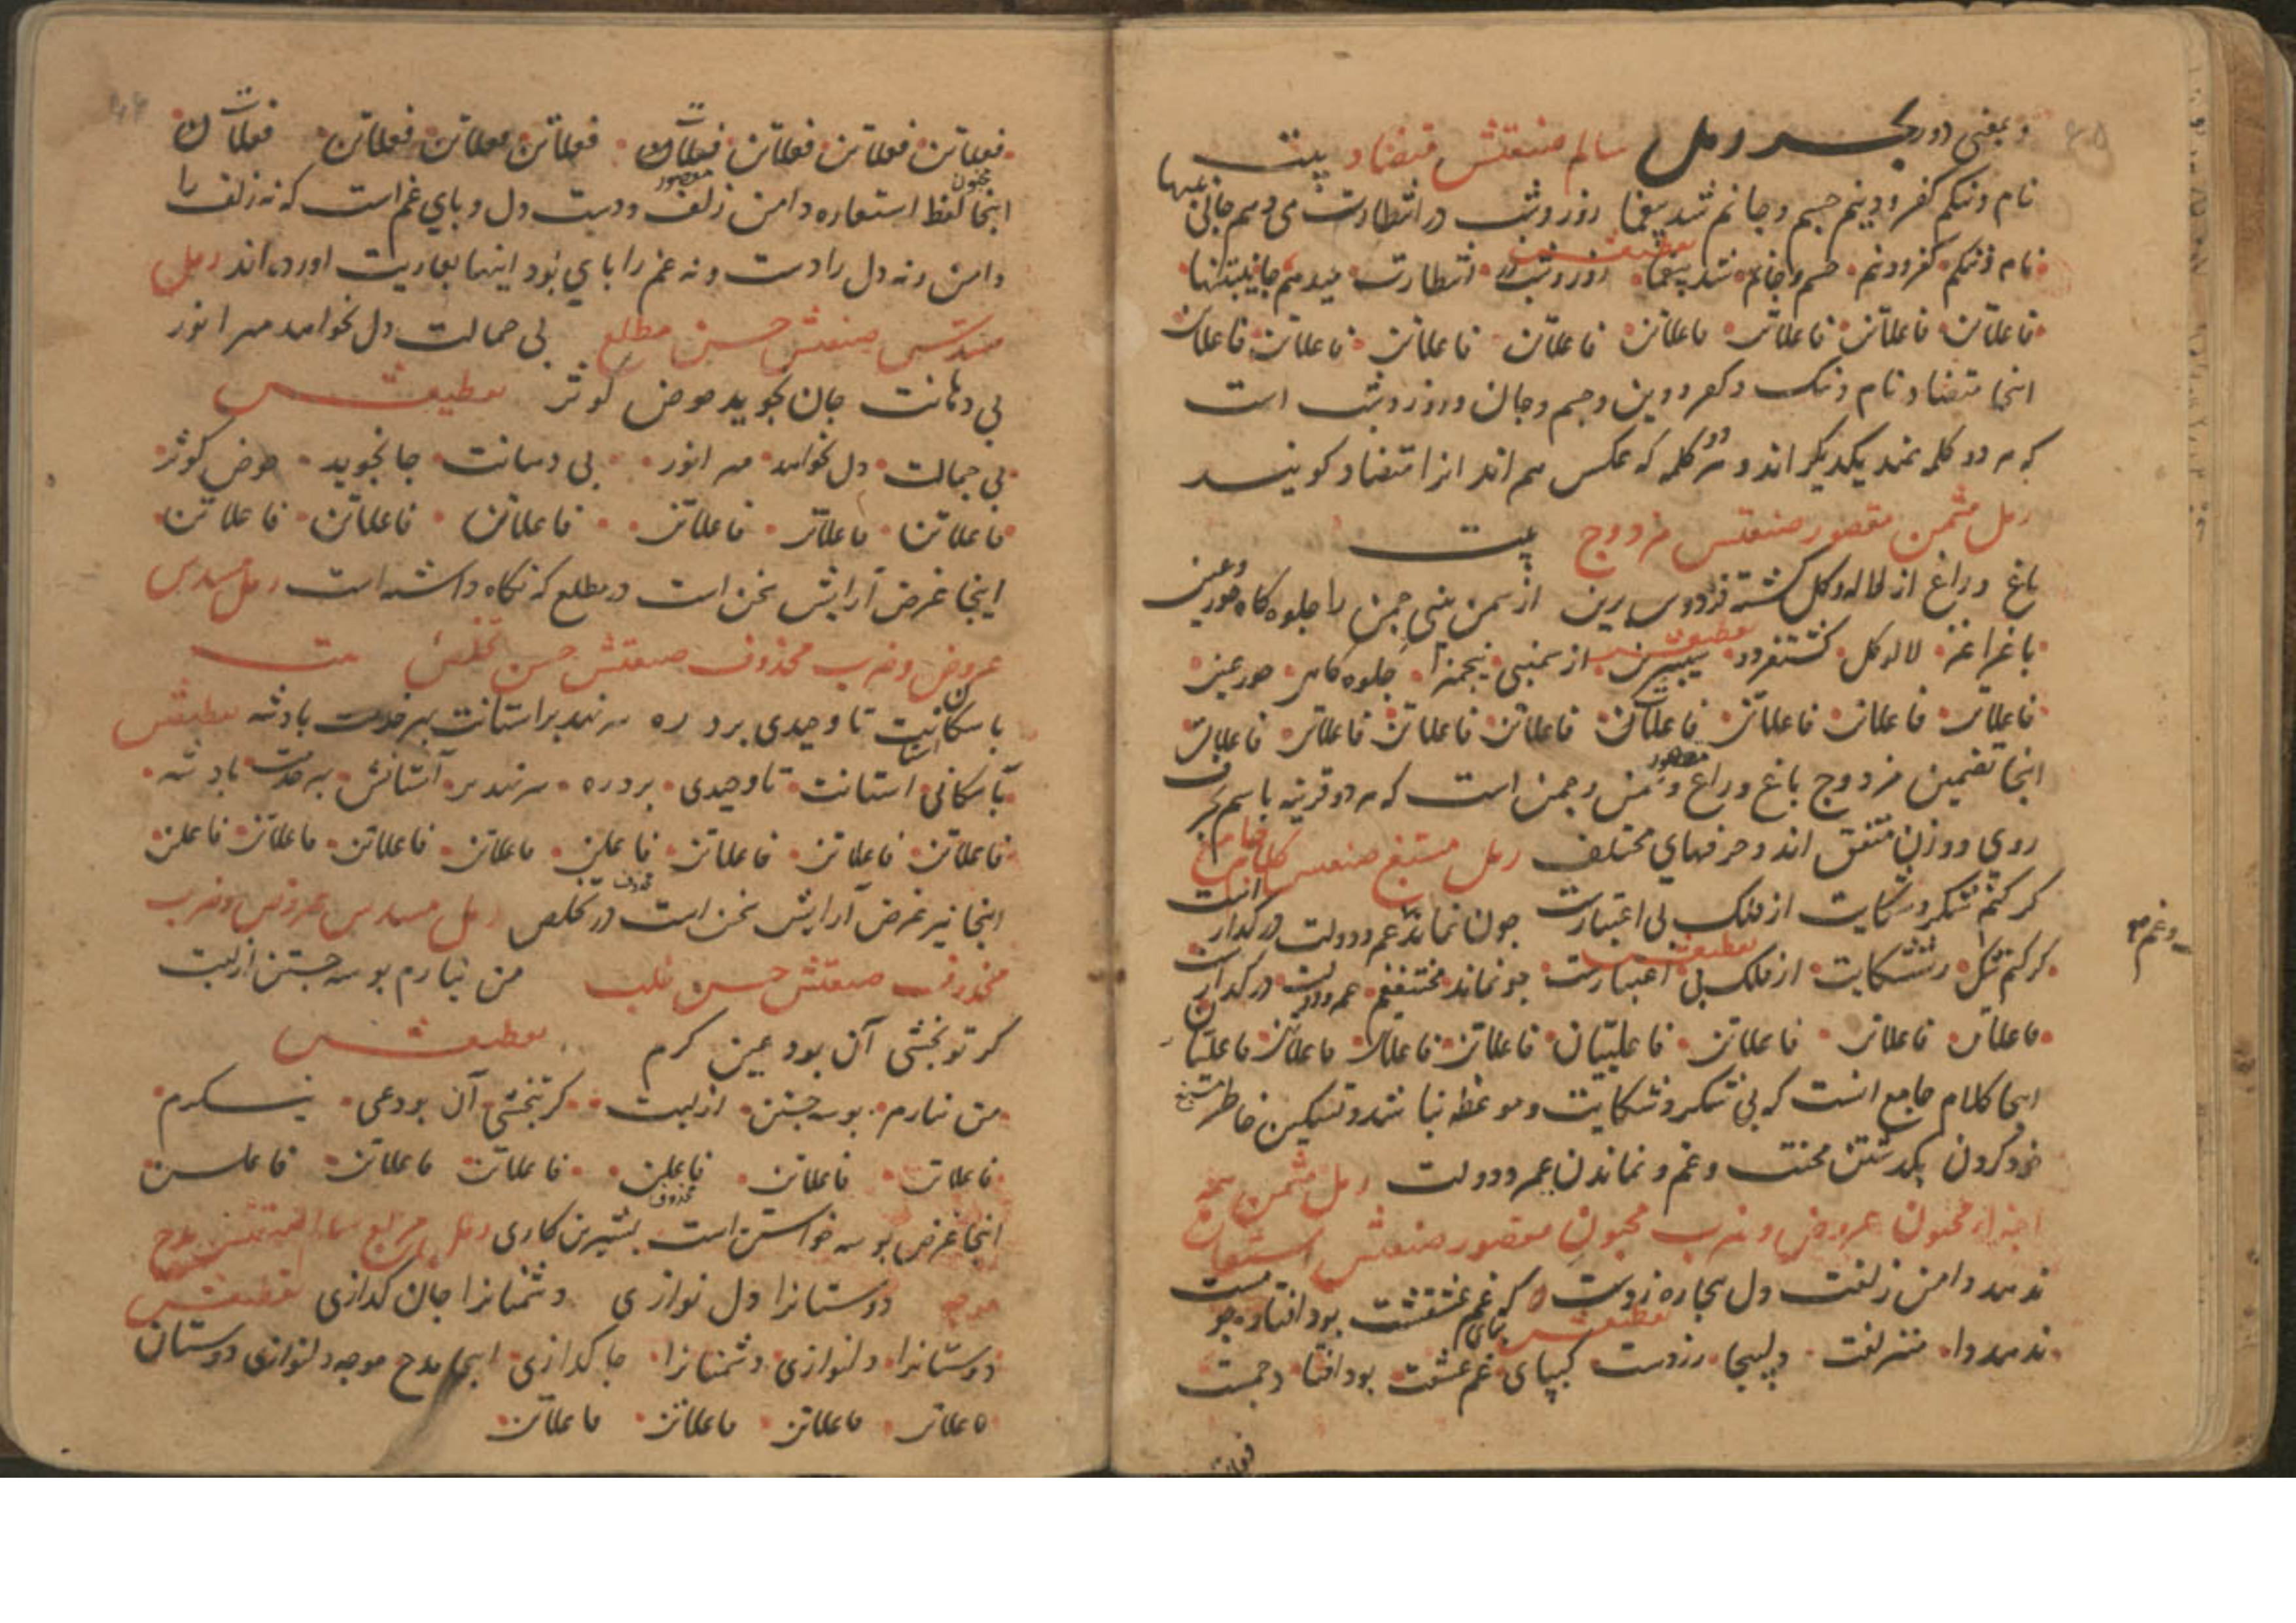 و بمعنی دور بحر رمل سالم صنعتش متضاد بیت
نام و ننکم کفر و دینم جسم و جانم شد بیغما روز و شب در انتظارت می دهم جانی به تنها
تقطیعش
نام و ننکم کفر و دینم جسم و جانم شد بیغما روز و شب در انتظارت میدهم جانی بتنها
فاعلاتن فاعلاتن فاعلاتن فاعلاتن فاعلاتن فاعلاتن فاعلاتن فاعلاتن
اینجا متضاد نام و ننک و کفر و دین و جسم و جان و روز و شب است
که هر دو کلمه ضد یکدیکر اند و هر دو کلمه که عکس هم اند انرا متضاد کویند
رمل مثمن مقصور صنعتش مزدوج بیت
باغ و راغ از لاله و کل کشته فردوس برین از سمن بینی چمن را جلوه کاه حور عین
تقطیعش
باغ راغز لاله و کل کشتفردو سیبرین از سمنبی نیچمنرا جلوه کاهی حور عین
فاعلاتن فاعلاتن فاعلاتن فاعلات فاعلاتن فاعلاتن فاعلاتن فاعلات
مقصور
اینجا تضمین مزدوج باغ و راغ و سمن و چمن است که هر دو قرینه باسم حرف
روی و وزن متفق اند و حرفهای مختلف رمل مسبغ صنعتش کلام جامع
کر کنم شکر و شکایت از فلک بی اعتبارست چون نماند عمر و دولت در کدار است
و غم
تقطیعش
کر کنم شکر و شکایت از فلک بی اعتبارست چو نماند محنتغم عمر و دولت در کدارست
فاعلاتن فاعلاتن فاعلاتن فاعلییان فاعلاتن فاعلاتن فاعلاتن فاعلییان
مسبغ
اینجا کلام جامع انست که بی شکر و شکایت و موعظه نباشد و تسکین خاطر
خود کردن بکدشتن محنت و غم و نماندن عمر و دولت رمل مثمن همه
اجزاء مخبون عروض و ضرب مخبون مقصور صنعتش استعاره
ندهد دامن زلفت دل بیچاره ز دست که بپای غم عشقت بود افتاده چو مست
تقطیعش
ندهد دا من زلفت دلبیچا ره زدست کبپای غم عشقت بود افتا دچمست
فعلاتن فعلاتن فعلاتن فعلات فعلاتن فعلاتن فعلاتن فعلات
مخبون مقصور
اینجا لفظ استعاره دامن زلف و دست دل و پای غم است که نه زلف را
دامن و نه دل را دست و نه غم را پای بود اینها بعاریت اورده اند رمل
مسدس صنعتش حسن مطلع بی جمالت دل نخواهد مهر انور
بی دهانت جان نجوید حوض کوثر تقطیعش
بی جمالت دل نخواهد مهر انور بی دهانت جا نجوید حوض کوثر
فاعلاتن فاعلاتن فاعلاتن فاعلاتن فاعلاتن فاعلاتن
اینجا غرض آرایش سخن است در مطلع که نکاه داشته است رمل مسدس
عروض و ضرب محذوف صنعتش حسن تخلص بیت
با سکانت تا وحیدی برد ره سر نهد بر استانت بهر خدمت پادشه تقطیعش
با سکانی استانت تا وحیدی برد ره سر نهد بر آستانش بهر خدمت پادشه
فاعلاتن فاعلاتن فاعلاتن فاعلن فاعلاتن فاعلاتن فاعلاتن فاعلن
محذوف
اینجا نیز غرض آرایش سخن است در تخلص رمل مسدس عروض و ضرب
محذوف صنعتش حسن طلب من نیارم بوسه جستن از لبت
کر تو بخشی آن بود عین کرم تقطیعش
من نیارم بوسه جستن از لبت کرتبخشی آن بود عی نکرم
فاعلاتن فاعلاتن فاعلن فاعلاتن فاعلاتن فاعلن
محذوف
اینجا غرض بوسه خواستن است بشیرین کاری رمل مربع سالم صنعتش مدح
موجه دوستانرا دل نوازی دشمنانرا جان کدازی تقطیعش
دوستانرا دلنوازی دشمنانرا جا کدازی اینجا مدح موجه دلنوازی دوستان
فاعلاتن فاعلاتن فاعلاتن فاعلاتن